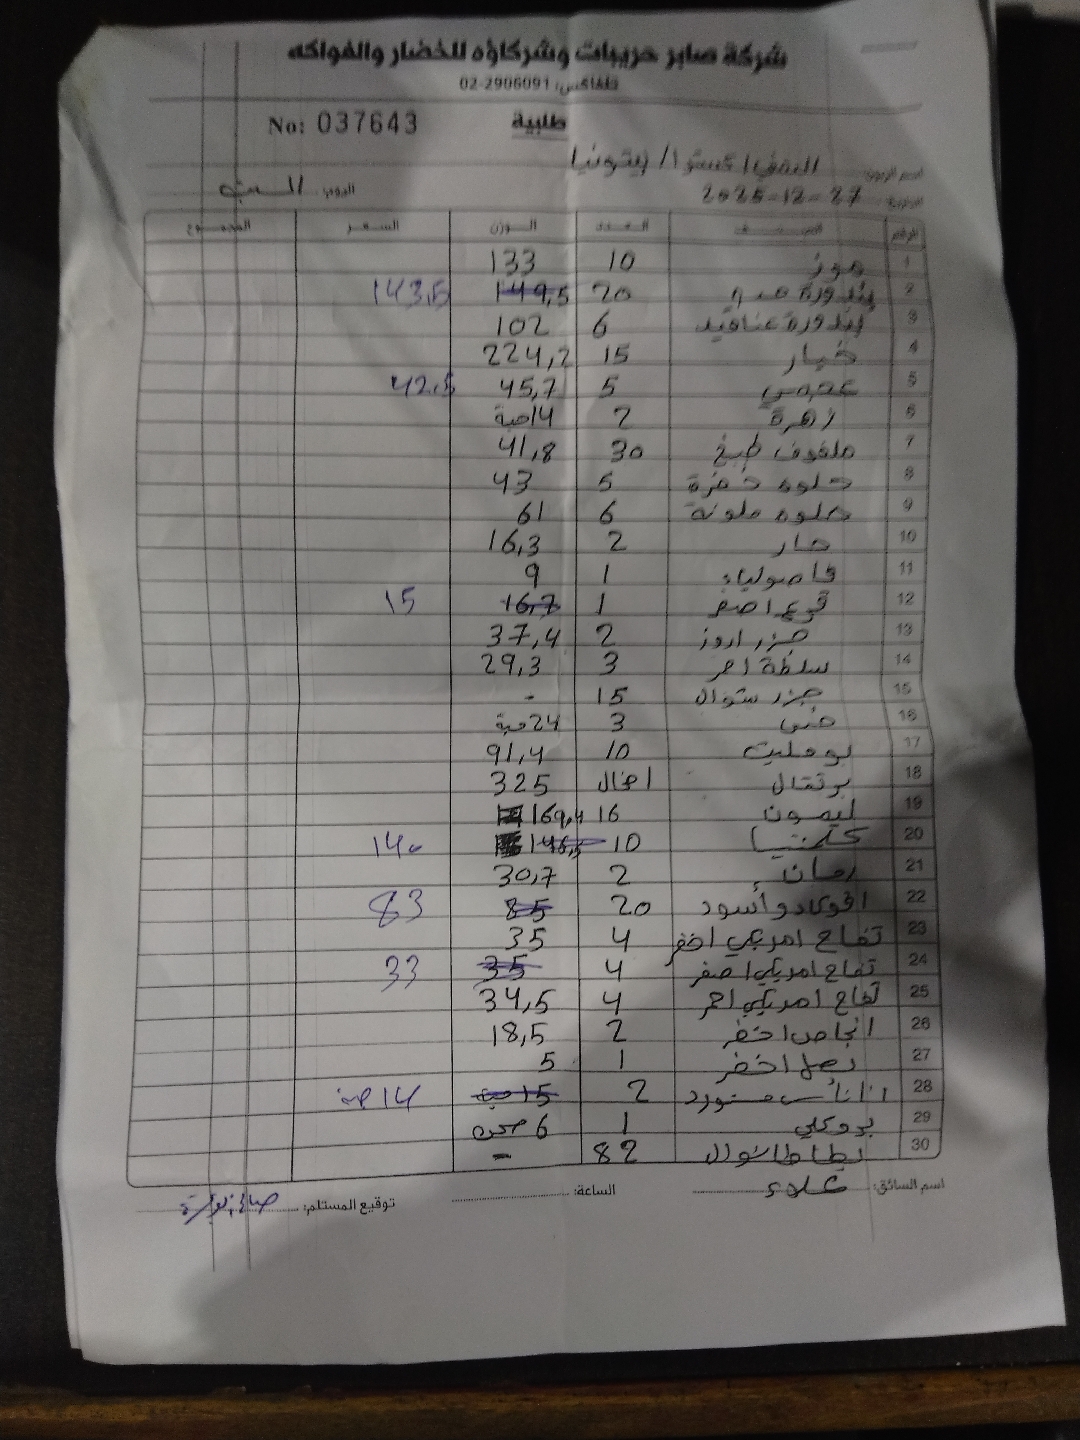 شركة صابر حريبات وشركاؤه للخضار والفواكه
تلفاكس: 02-2906091
طلبية No: 037643
اسم الزبون: اكسترا / زيتونيا
التاريخ: 27-12-2025 اليوم: السبت
الرقم الصنف العدد الوزن السعر المجموع
1 موز 10 133
2 بندورة 20 149,5 143.5
3 بندورة عناقيد 6 102
4 خيار 15 224,2
5 عجمي 5 45,7 42.5
6 زهرة 2 14حبة
7 ملفوف طبخ 30 41,8
8 حلوه خضرة 5 43
9 حلوه ملونة 6 61
10 حار 2 16,3
11 فاصولياء 1 9
12 قرع اصفر 1 16,7 15
13 جزر اروز 2 37,4
14 سلطة احمر 3 29,3
15 جزر ستوال 15 -
16 خس 3 24حبة
17 بومليت 10 91,4
18 برتقال 325
19 ليمون 16 169,4
20 كلمنتينا 10 146,5 140
21 رمان 2 30,7
22 افوكادو أسود 20 85 83
23 تفاح امريكي اخضر 4 35
24 تفاح امريكي اصفر 4 35 33
25 تفاح امريكي احمر 4 34,5
26 انجاص اخضر 2 18,5
27 بصل اخضر 1 5
28 اناناس مستورد 2 15حبة 14حبة
29 بروكلي 1 6 صحن
30 بطاطا نوال 82 -
اسم السائق: علاء الساعة: توقيع المستلم: